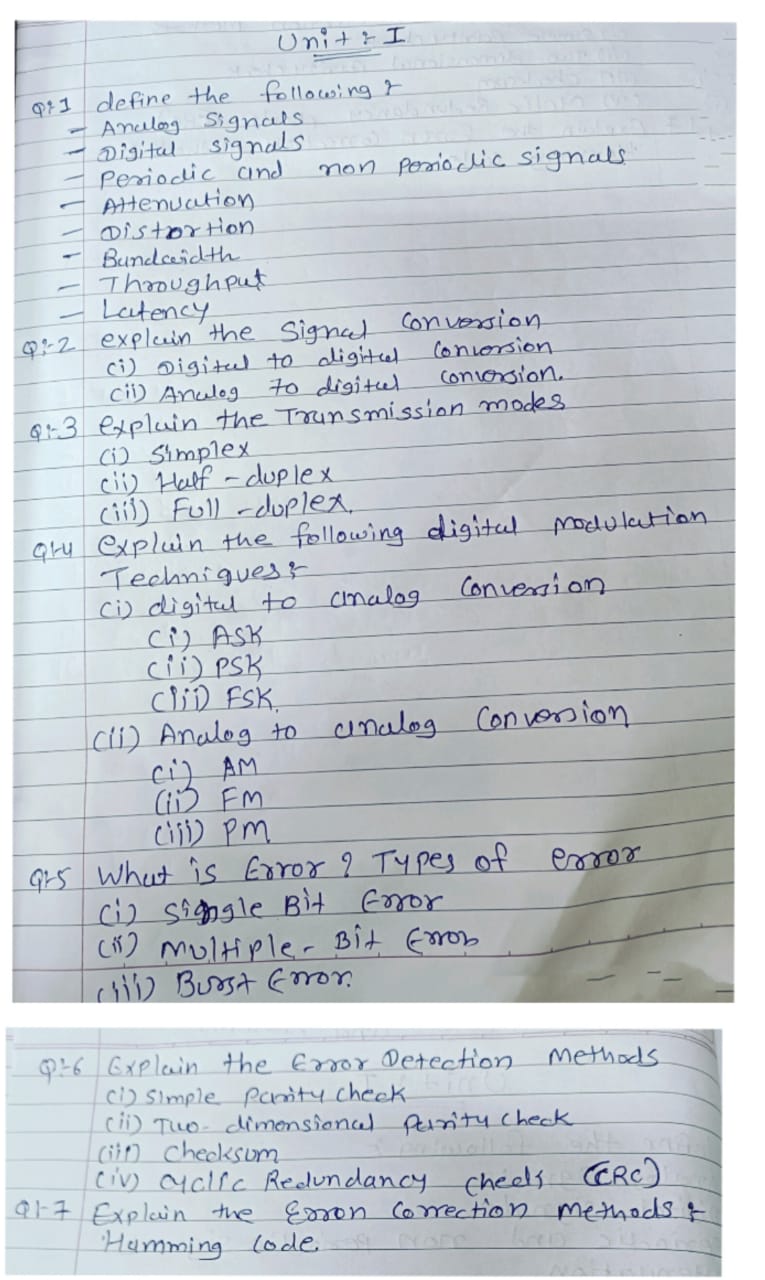 Unit :- I
Q:1 define the following :-
- Analog Signals
- Digital signals
- Periodic and non periodic signals
- Attenuation
- Distortion
- Bandwidth
- Throughput
- Latency
Q:-2 explain the Signal Conversion
(i) Digital to digital Conversion
(ii) Analog to digital conversion.
Q:-3 explain the Transmission modes
(i) Simplex
(ii) Half - duplex
(iii) Full - duplex.
Q:-4 explain the following digital modulation
Techniques :-
(i) digital to analog Conversion
(i) ASK
(ii) PSK
(iii) FSK.
(ii) Analog to analog Conversion
(i) AM
(ii) FM
(iii) PM
Q:-5 What is Error ? Types of error
(i) Single Bit Error
(ii) Multiple - Bit Error
(iii) Burst Error.
Q:-6 Explain the Error Detection Methods
(i) Simple parity check
(ii) Two - dimensional Parity Check
(iii) Checksum
(iv) cyclic Redundancy check (CRC)
Q:-7 Explain the Error Correction methods :-
Hamming Code.